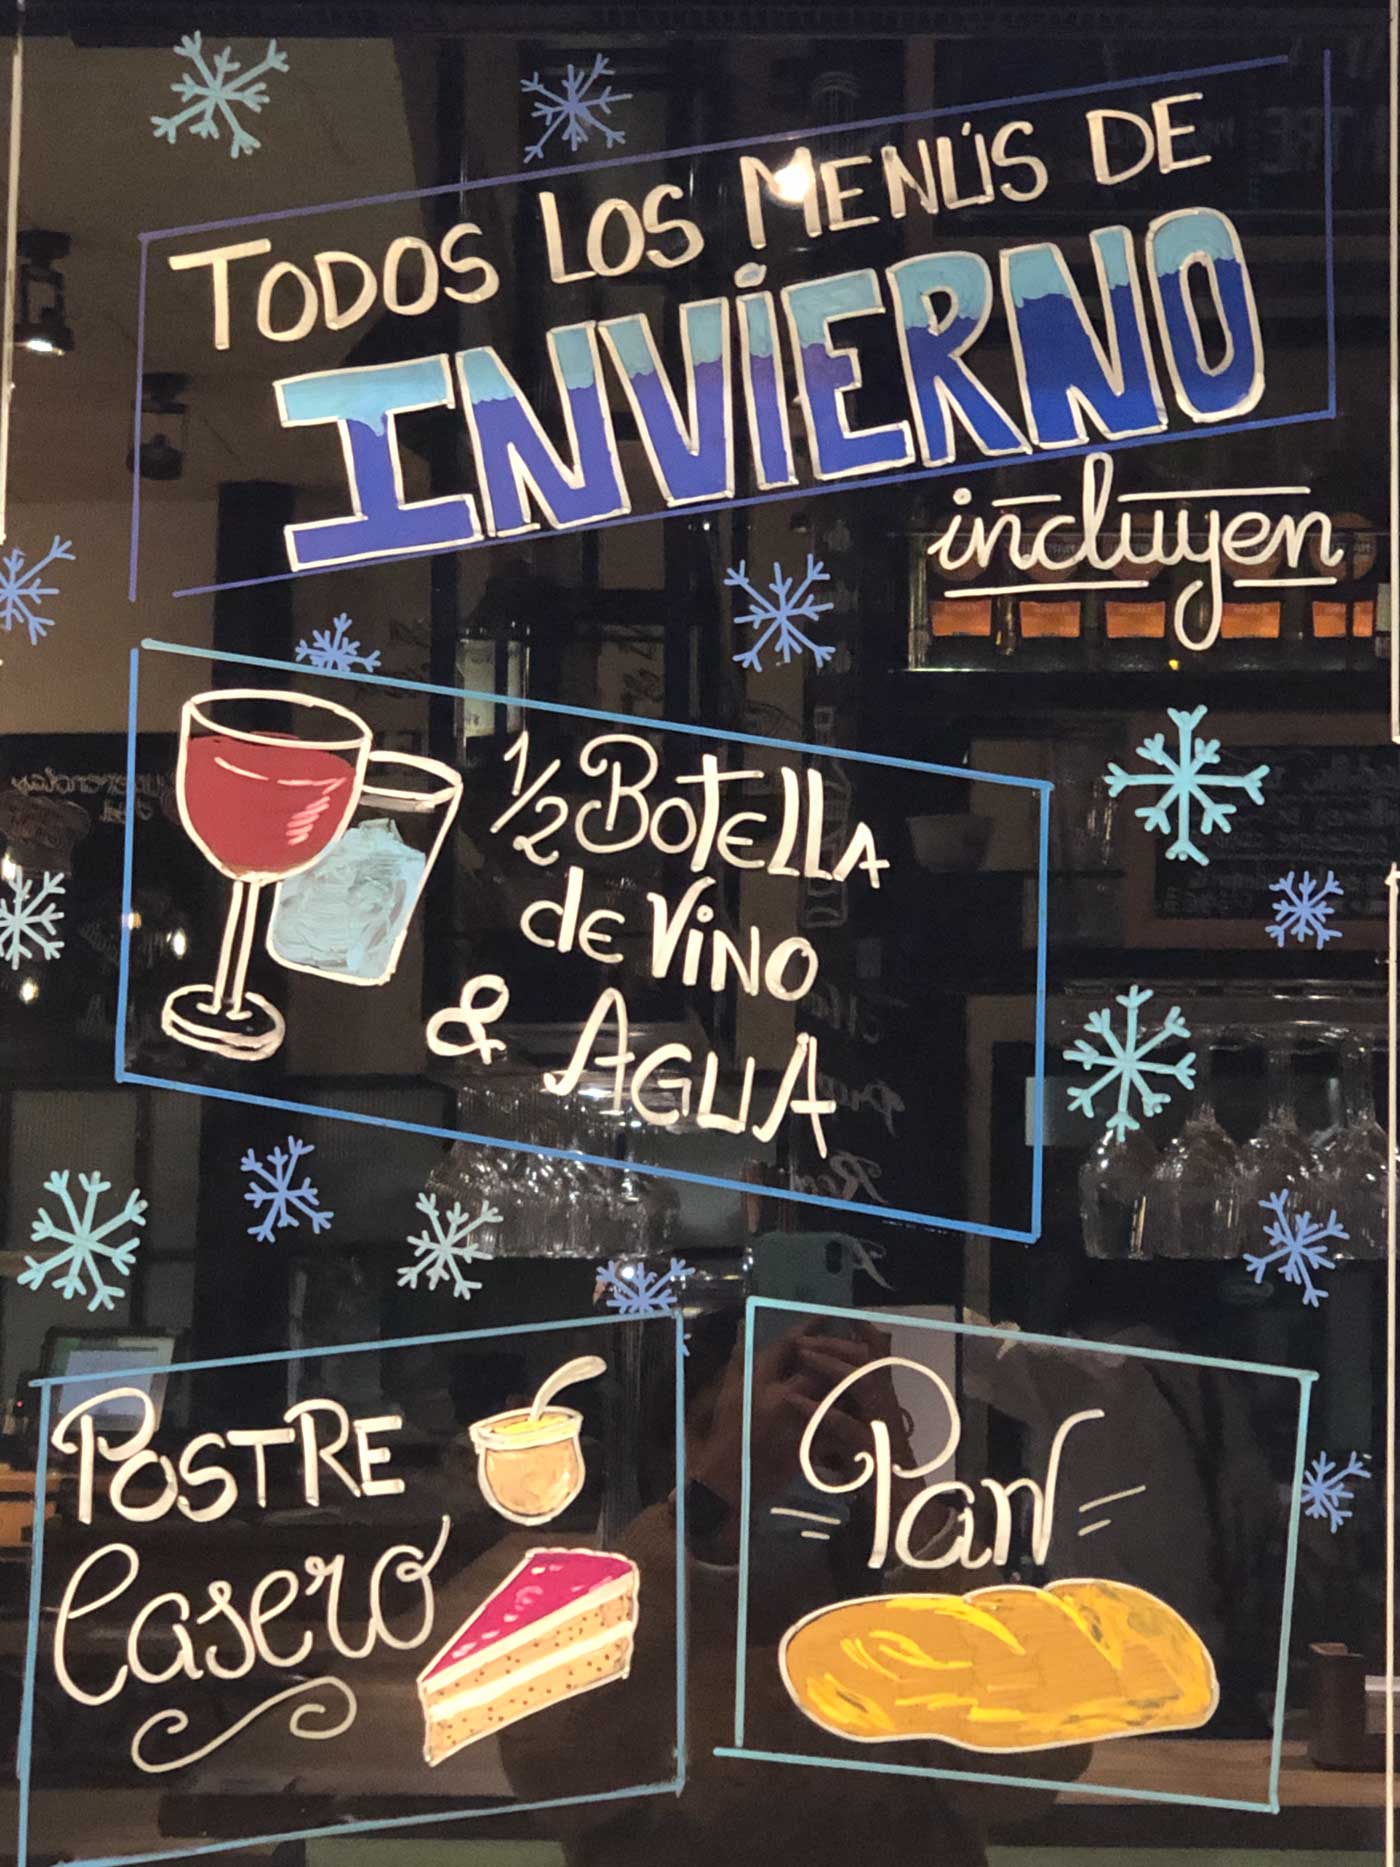 TODOS LOS MENÚS DE
INVIERNO
incluyen
1/2 BOTELLA
de ViNO
& AGUA
POSTRE
Casero
Pan